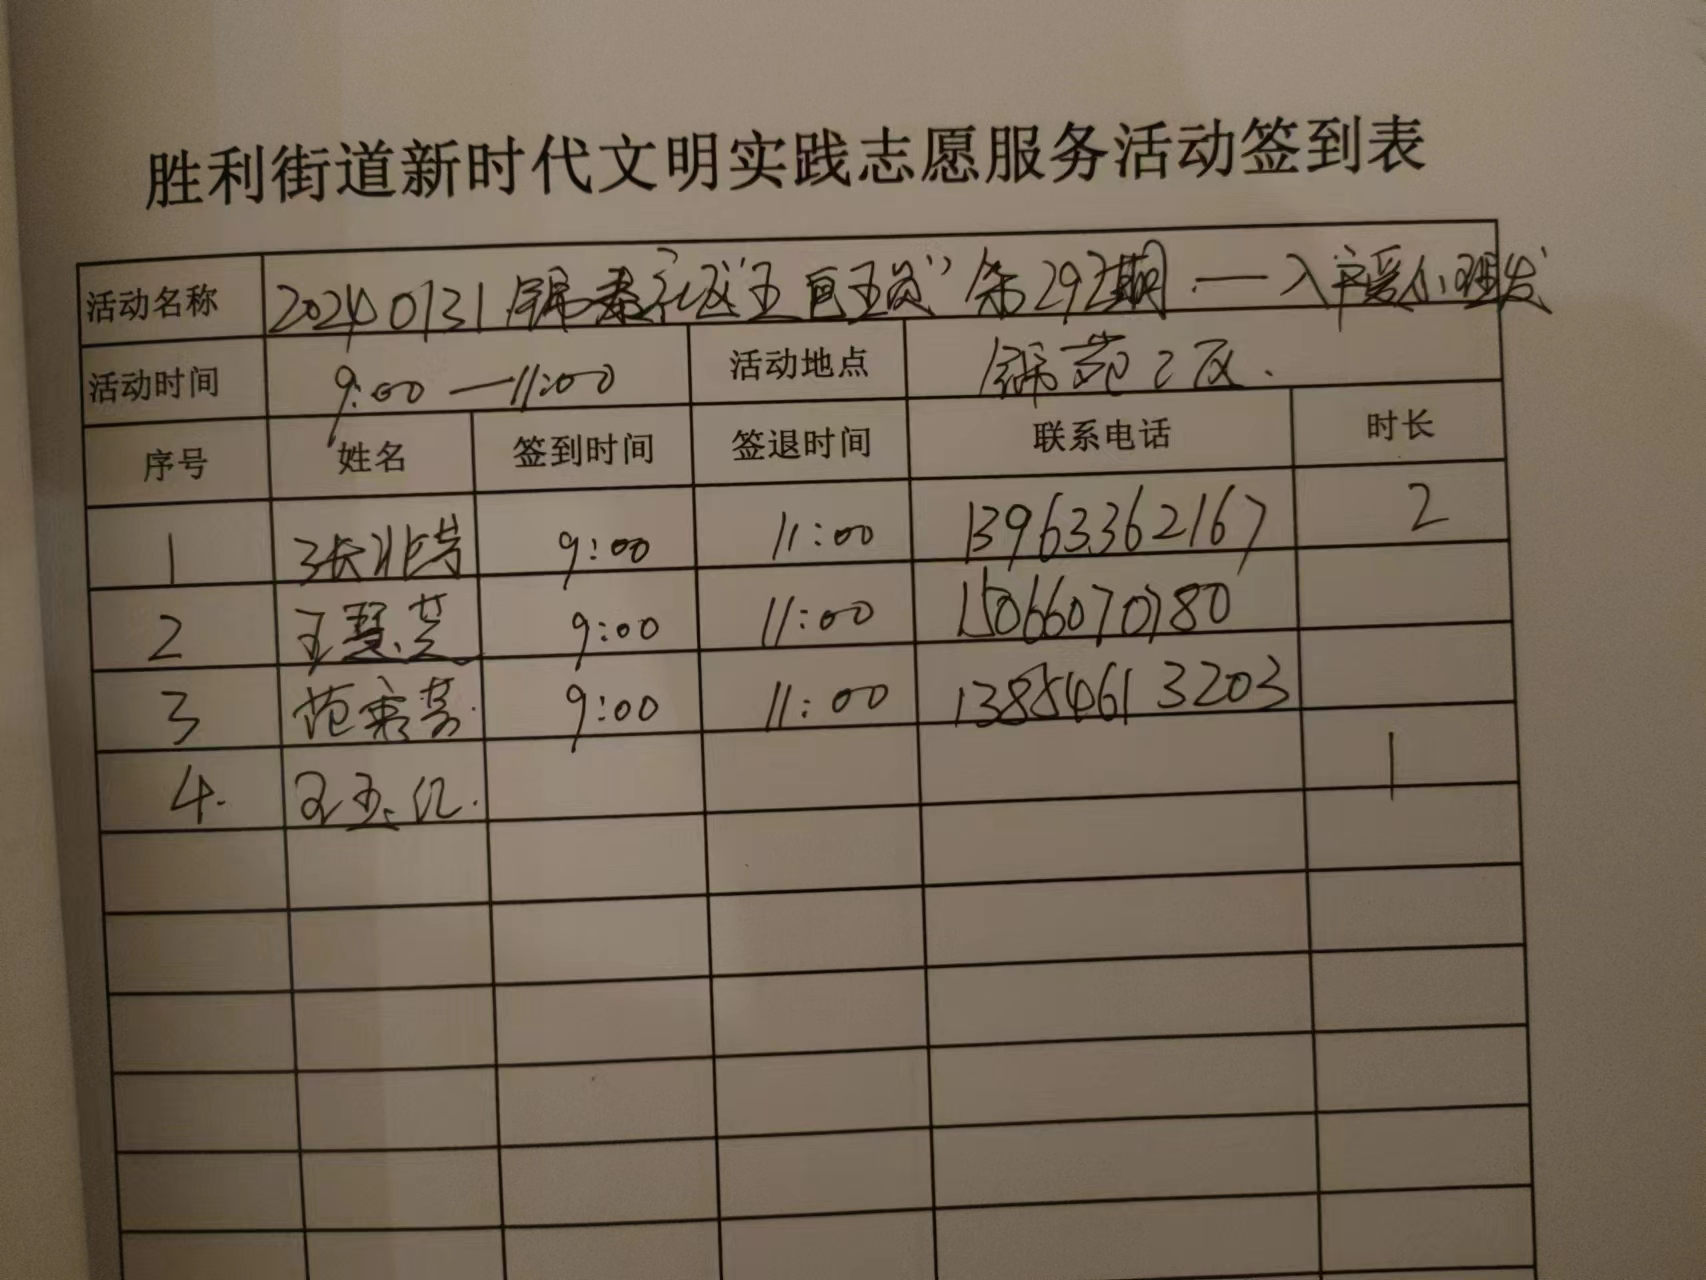 胜利街道新时代文明实践志愿服务活动签到表
活动名称 20240131 锦泰社区"五百五发"第292期 — 入户爱小理发
活动时间 9:00—11:00 活动地点 锦苑二区.
序号 姓名 签到时间 签退时间 联系电话 时长
1 张非芳 9:00 11:00 13963362167 2
2 王慧芝 9:00 11:00 15066070780
3 范秉芳 9:00 11:00 13854613203
4. 1